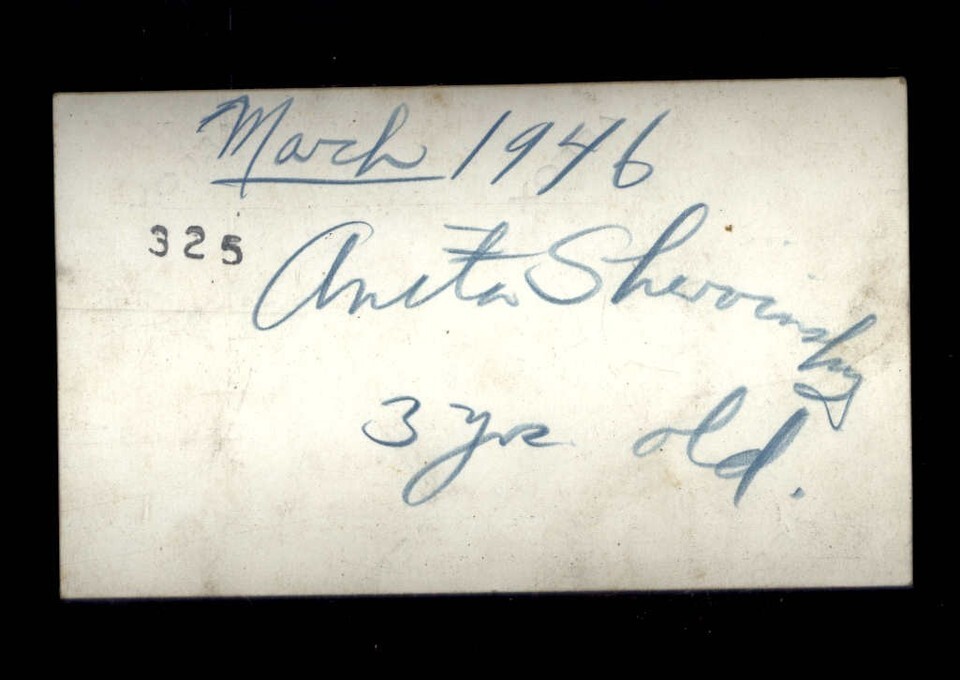 March 1946
325
Anita
3 yrs old.